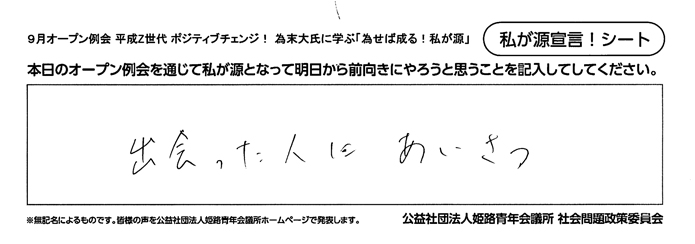 9月オープン例会 平成Z世代 ポジティブチェンジ！ 為末大氏に学ぶ「為せば成る！私が源」
私が源宣言！シート
本日のオープン例会を通じて私が源となって明日から前向きにやろうと思うことを記入してしてください。
出会った人に あいさつ
※無記名によるものです。皆様の声を公益社団法人姫路青年会議所ホームページで発表します。
公益社団法人姫路青年会議所 社会問題政策委員会